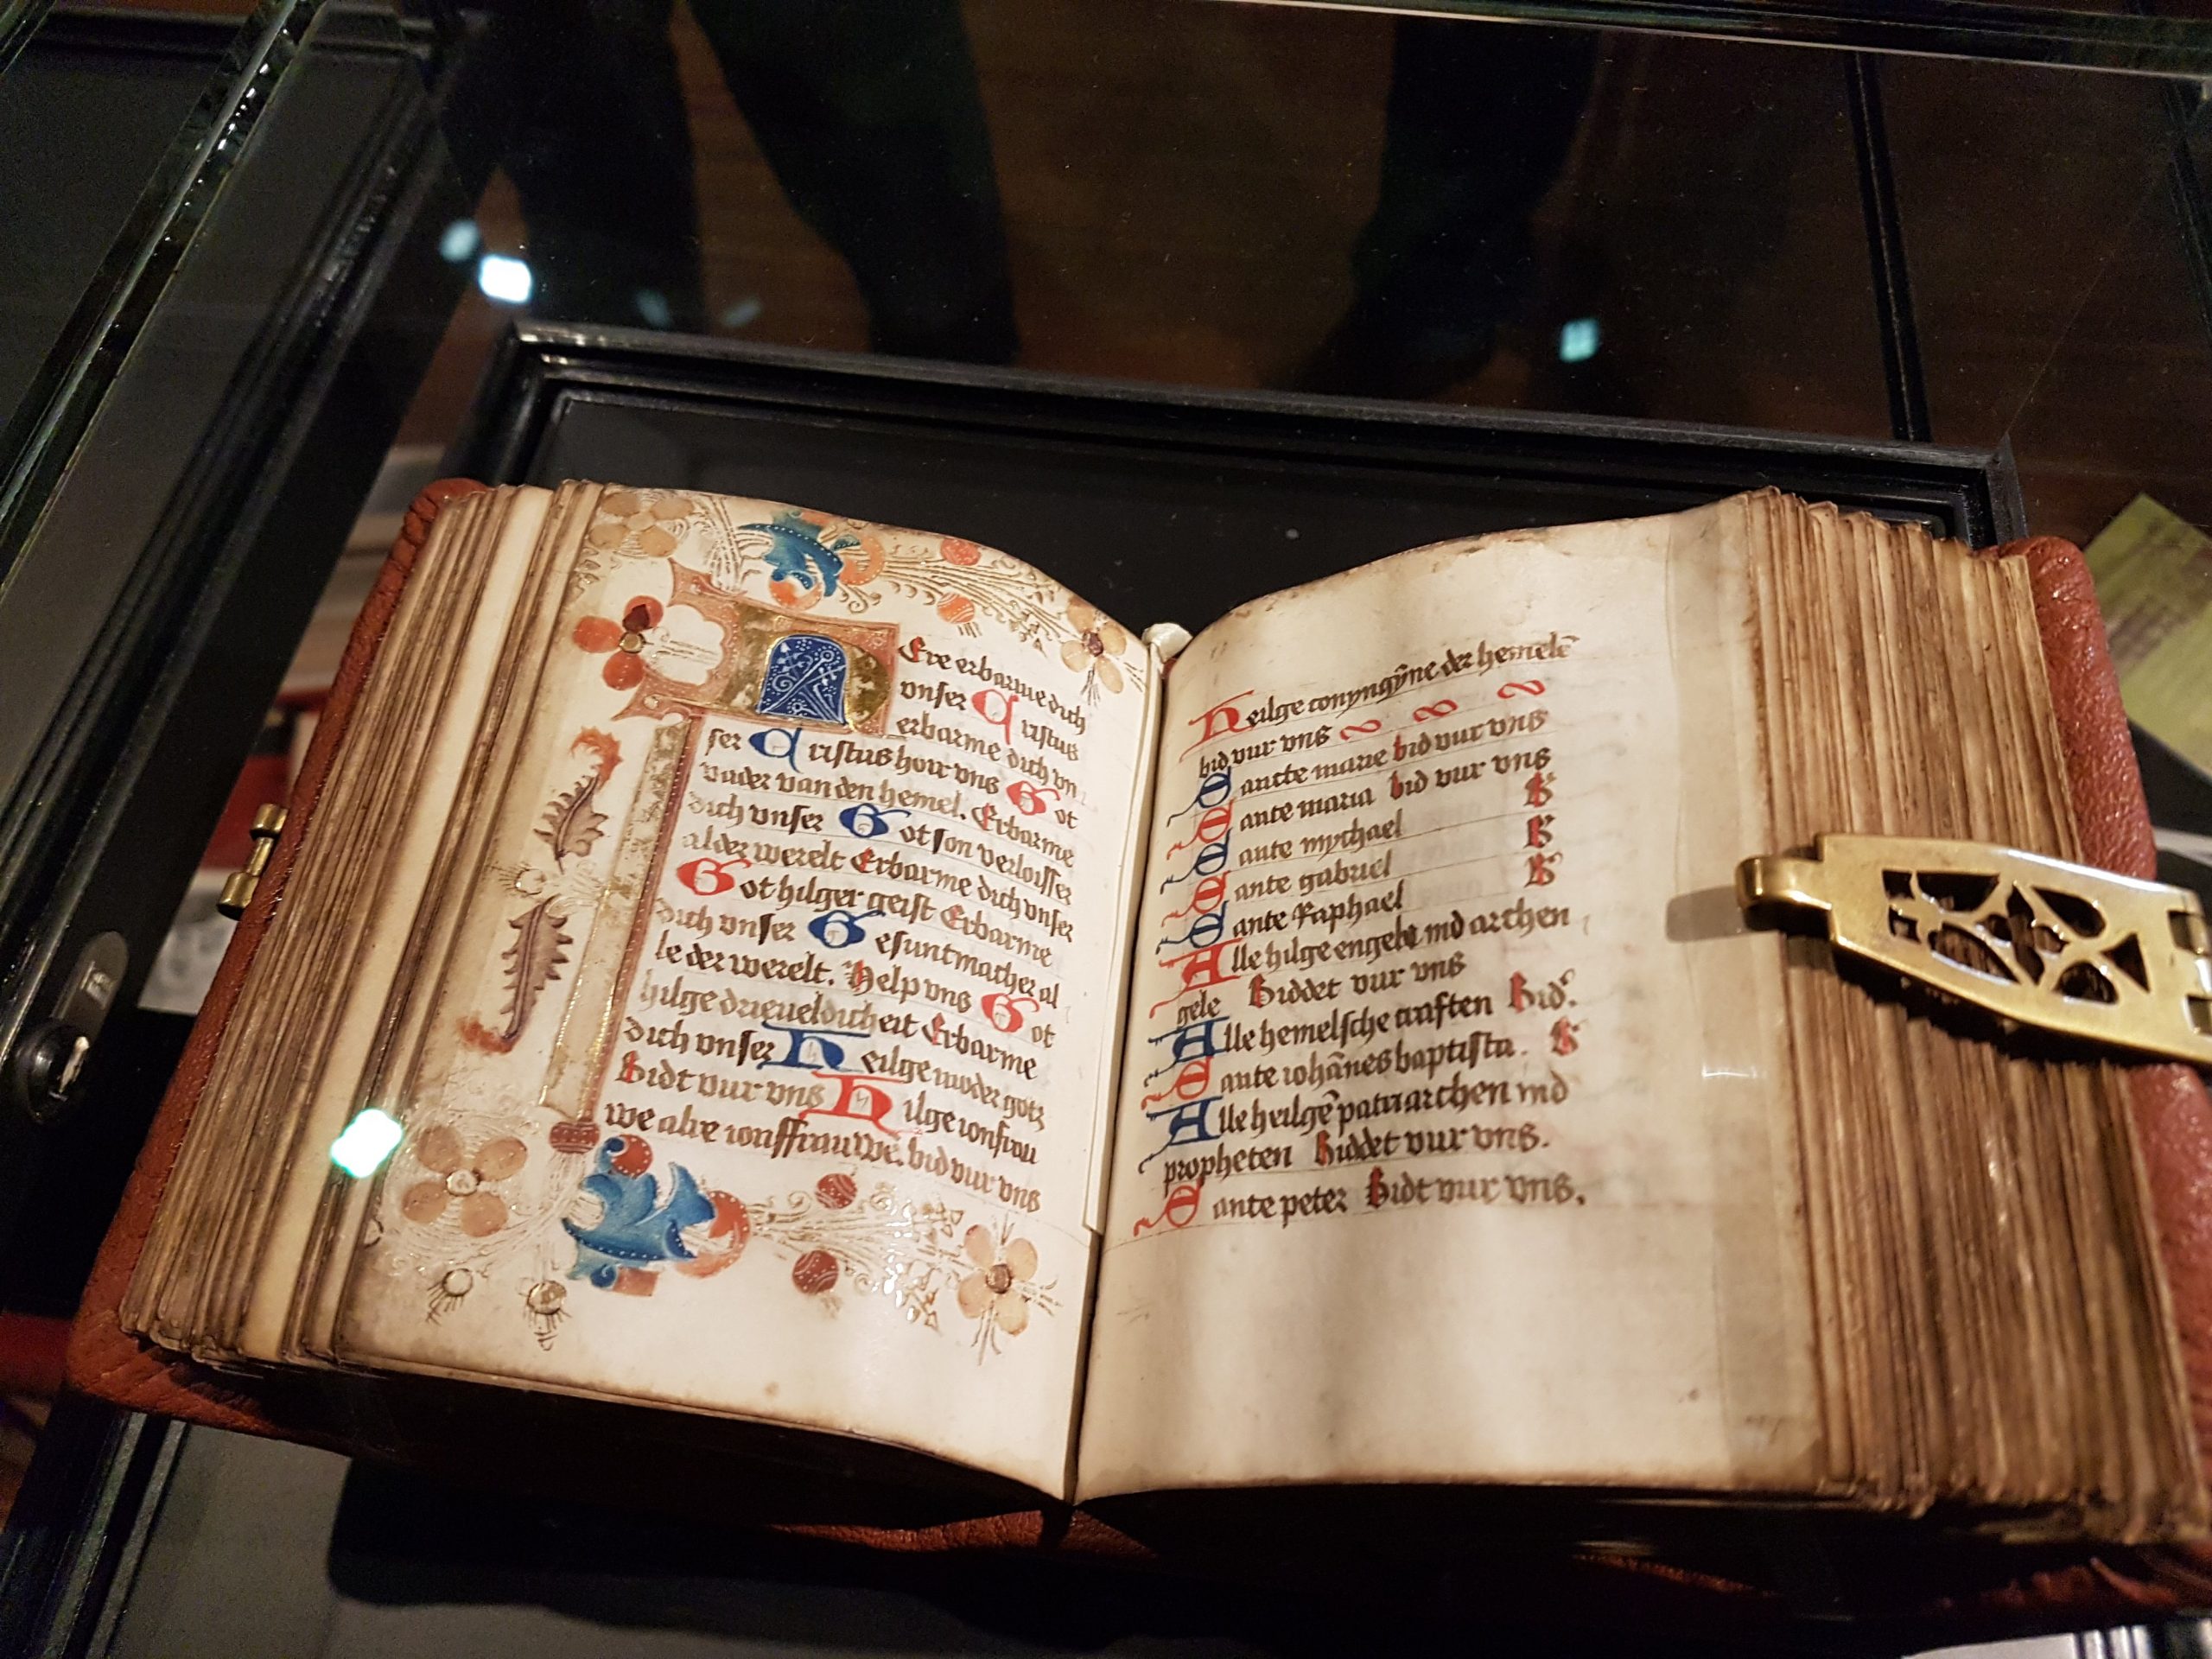 Ere erbarme dich
vnser Cristus
erbarme dich vn
ser Cristus hoir vns Got
vader van den hemel. Erbarme
dich vnser Got son verloisser
al der werelt Erbarme dich vnser
Got hilger geist Erbarme
dich vnser Gesuntmacher al
le der werelt. Help vns Got
hilge drieueldicheit Erbarme
dich vnser Heilge moder gotz
Bidt vur vns Hilge ionfrau
we alre ionffrauwe. bid vur vns
Heilge conyngȳne der hemelē
bid vur vns
Sancte marie bid vur vns
Sante maria bid vur vns
Sante mychael B
Sante gabriel B
Sante Raphael B
Alle hilge engele ind archen
gele Biddet vur vns
Alle hemelsche craften Bid.
Sante iohānes baptista. B
Alle heilgē patriarchen ind
propheten Biddet vur vns.
Sante peter Bidt vur vns.